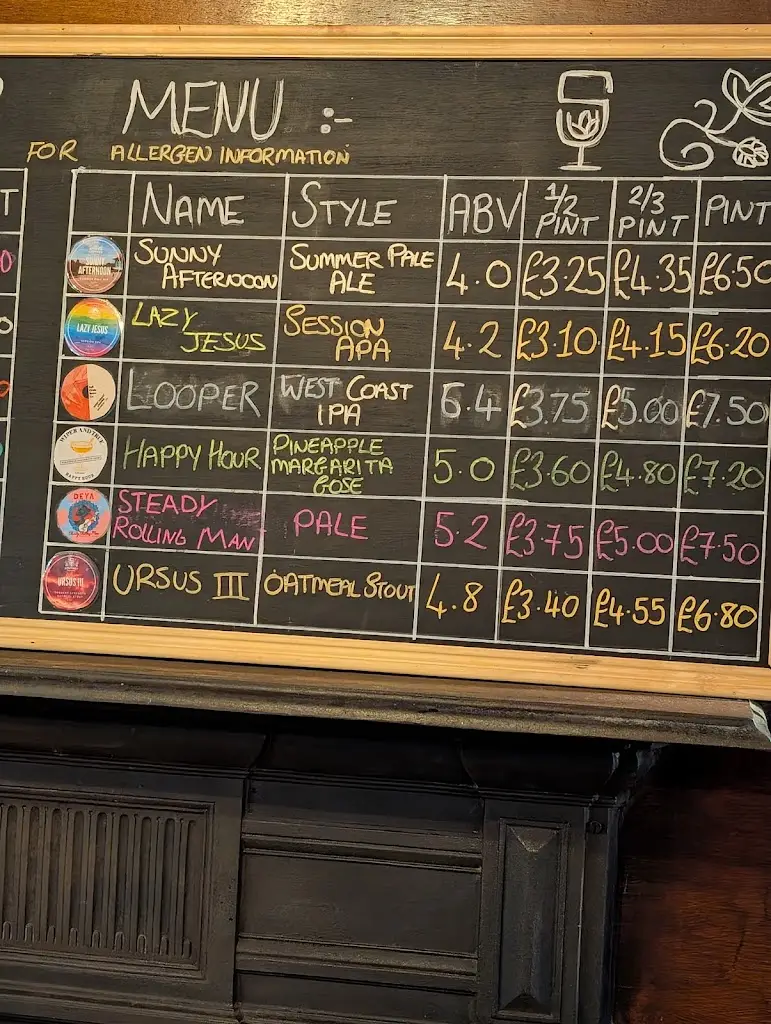 MENU :-
FOR ALLERGEN INFORMATION
NAME STYLE ABV 1/2 PINT 2/3 PINT PINT
SUNNY AFTERNOOON SUMMER PALE ALE 4.0 £3.25 £4.35 £6.50
LAZY JESUS SESSION APA 4.2 £3.10 £4.15 £6.20
LOOPER WEST COAST IPA 6.4 £3.75 £5.00 £7.50
HAPPY HOUR PINEAPPLE MARGARITA GOSE 5.0 £3.60 £4.80 £7.20
DEYA STEADY ROLLING MAN PALE 5.2 £3.75 £5.00 £7.50
URSUS III URSUS III OATMEAL STOUT 4.8 £3.40 £4.55 £6.80
SUNNY AFTERNOON
LAZY JESUS
WIPER AND TRUE
HAPPY HOUR